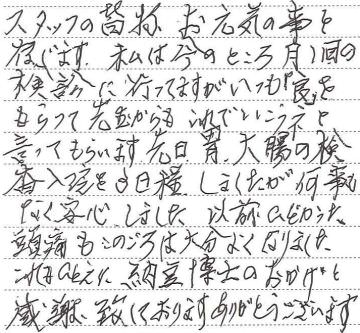 スタッフの皆様 お元気の事と
存じます。私は今のところ月1回の
検診に行ってますがいつも良を
もらって先生からもこれでいいネと
言ってもらいます。先日胃、大腸の検
査入院を3日程しましたが何事も
なく安心しました 以前ひどかった
頭痛もこのごろは大分よくなりました
これもひとえに納豆博士のおかげと
感謝致しておりますありがとうございます